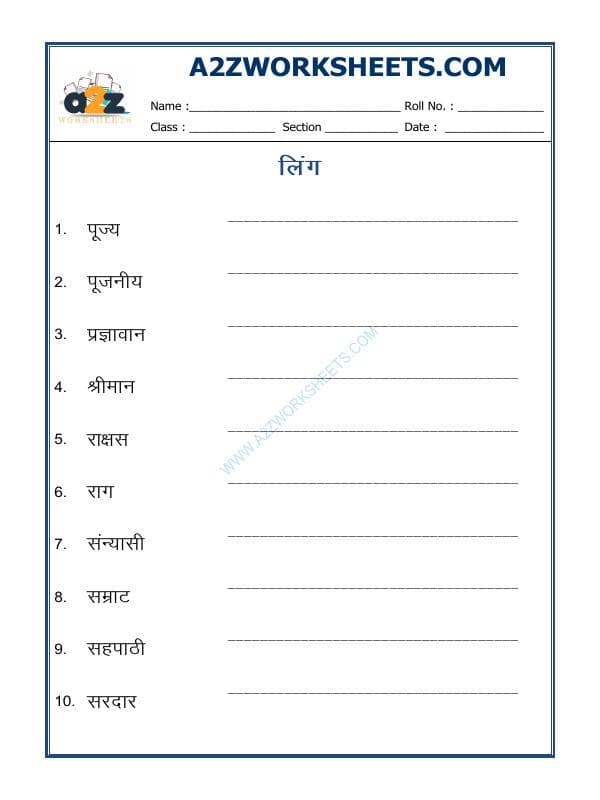 A2ZWORKSHEETS.COM
a2z
WORKSHEETS
Name :______________________________ Roll No. : ____________
Class : ____________ Section __________ Date : ______________
लिंग
1. पूज्य ____________________________________
2. पूजनीय ____________________________________
3. प्रज्ञावान ____________________________________
4. श्रीमान ____________________________________
5. राक्षस ____________________________________
6. राग ____________________________________
7. संन्यासी ____________________________________
8. सम्राट ____________________________________
9. सहपाठी ____________________________________
10. सरदार ____________________________________
WWW.A2ZWORKSHEETS.COM